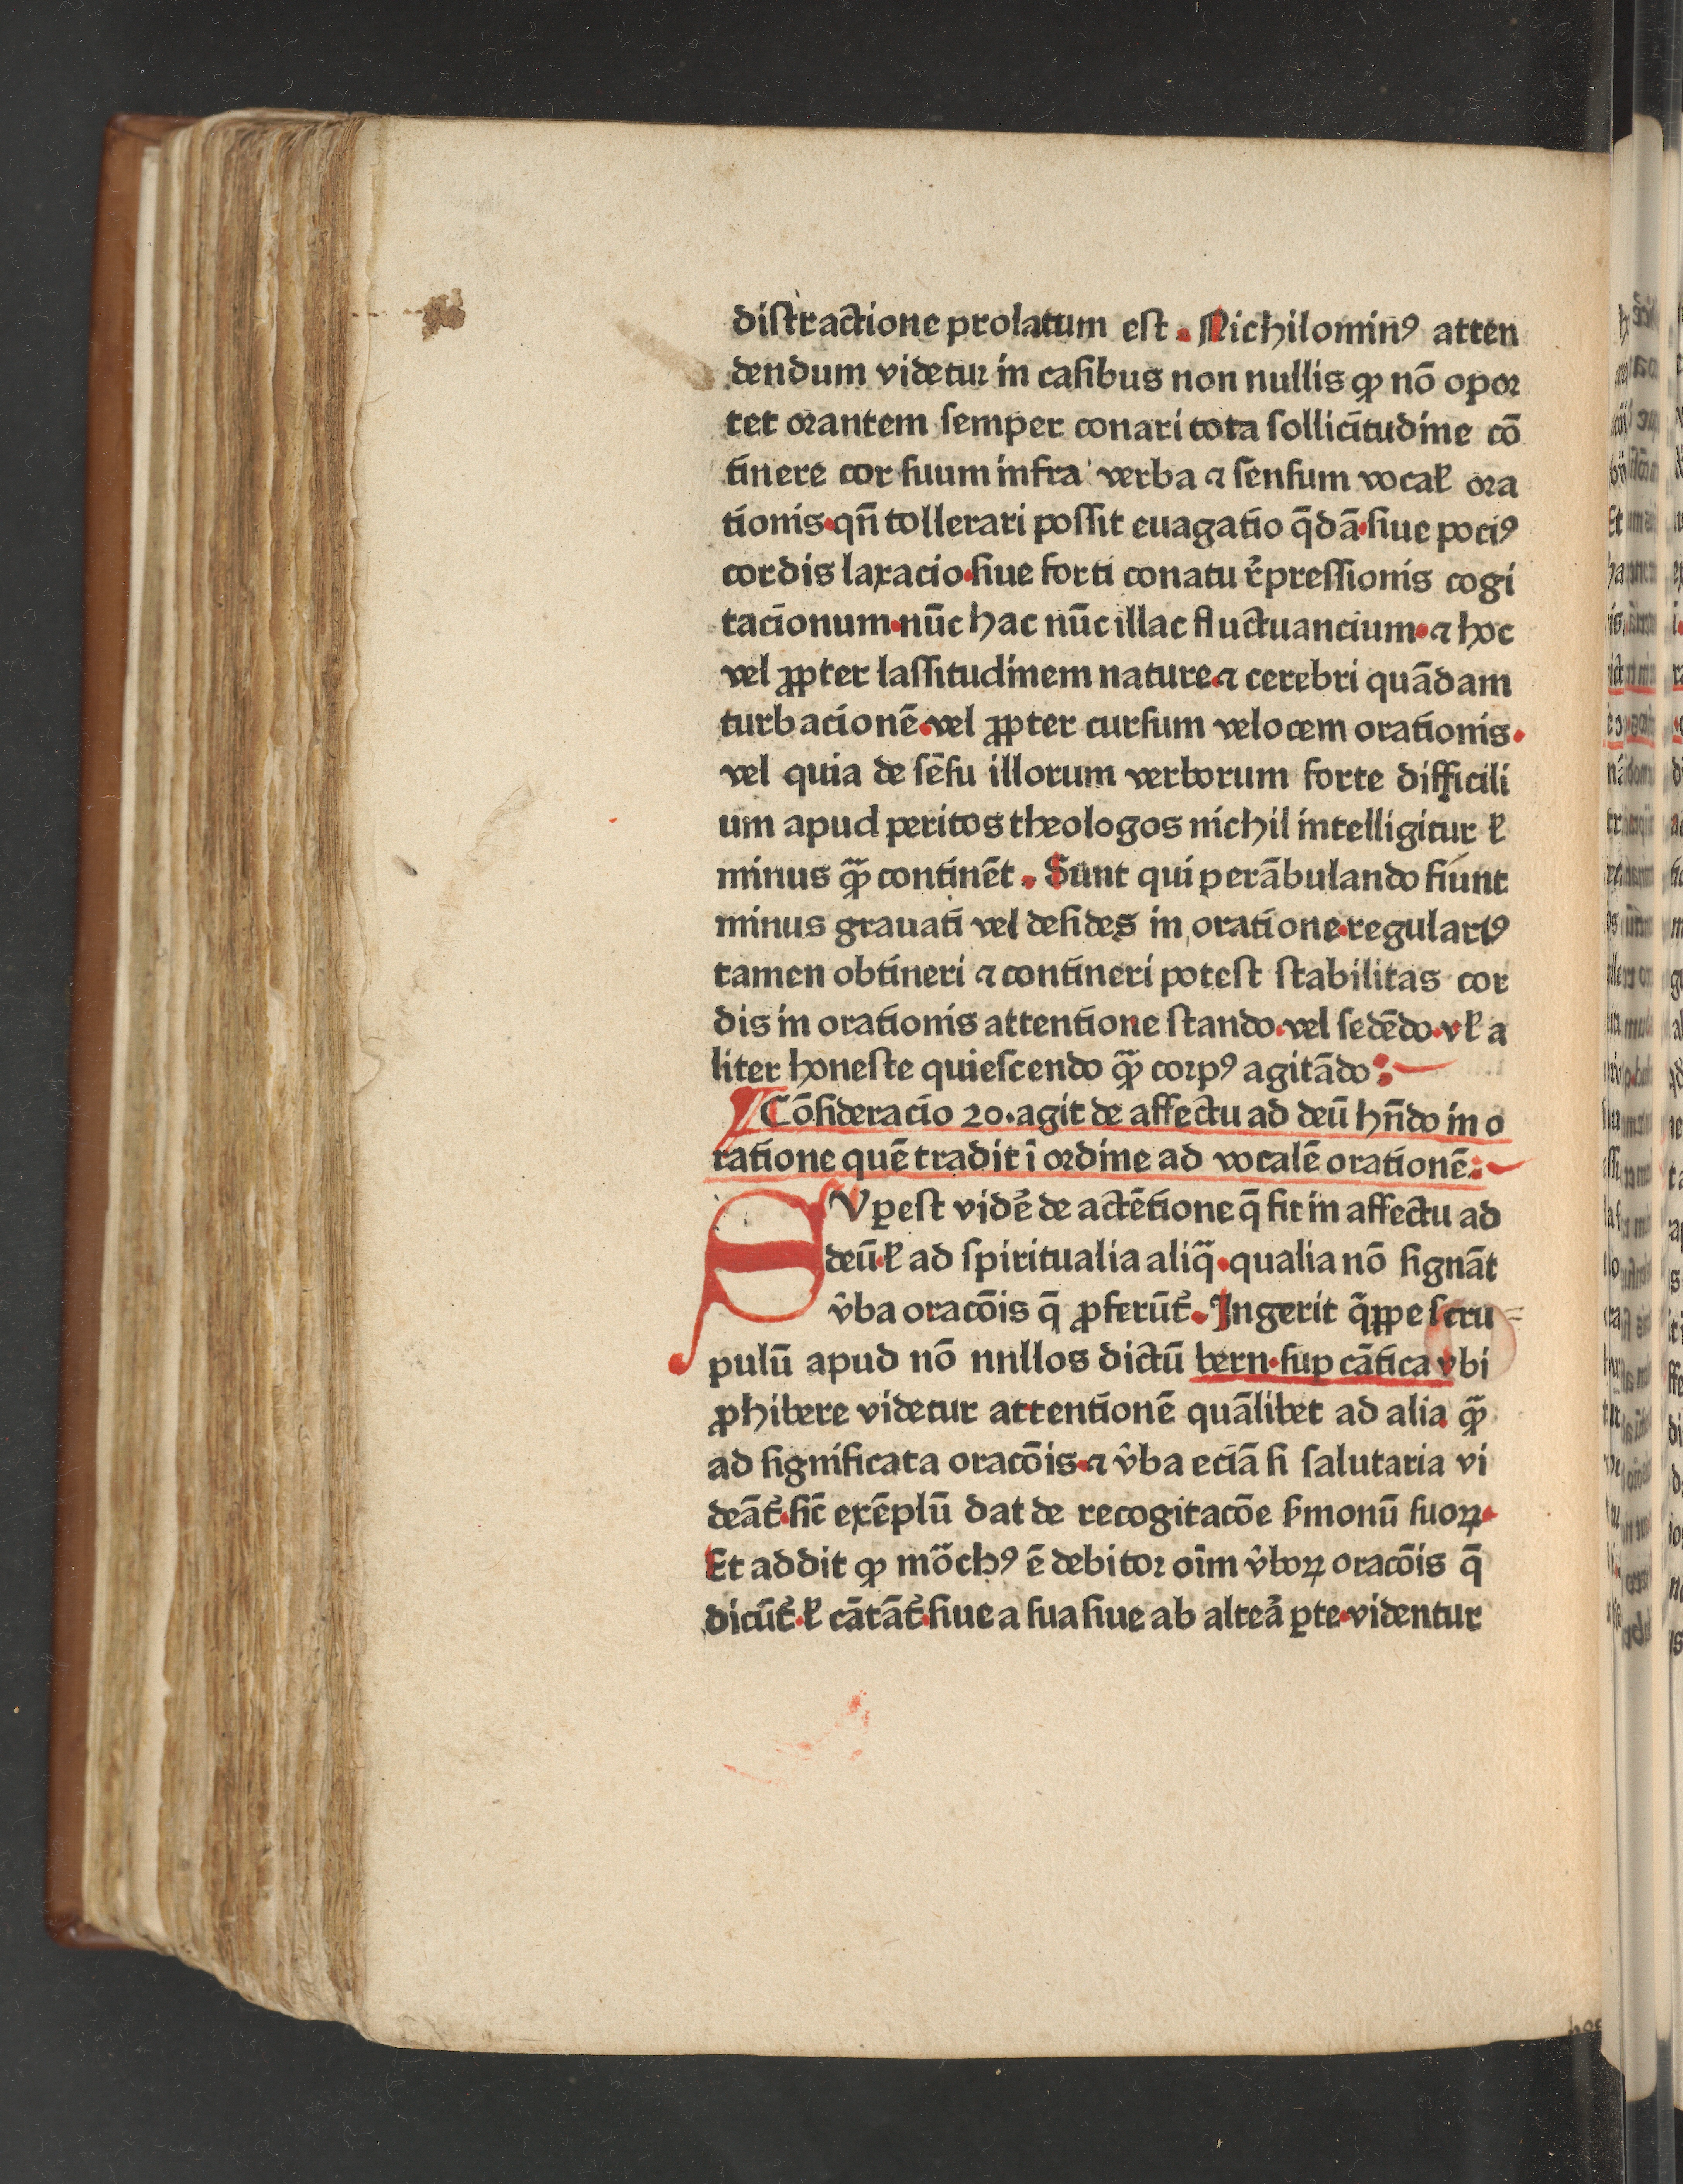 diſtractione prolatum eſt. Nichilominꝰ atten
dendum videtur in caſibus non nullis ꝙ nō opoꝛ
tet oꝛantem ſemper conari tota ſollicitudine cō
tinere cor ſuum infra verba ⁊ ſenſum vocaꝉ oꝛa
tionis·qn̄ tollerari poſſit euagatio q̄dā·ſiue pociꝰ
cordis laxacio·ſiue forti conatu r̓preſſionis cogi
tacionum·nūc hac nūc illac fluctuancium·⁊ hoc
vel ꝓpter laſſitudinem nature·⁊ cerebri quādam
turbacionē·vel ꝓpter curſum velocem orationis·
vel quia de ſēſu illorum verborum forte difficili
um apud peritos theologos nichil intelligitur ꝉ
minus ꝙ̄ continēt. Sunt qui perābulando fiunt
minus grauati vel deſides in oratione·regulariꝰ
tamen obtineri ⁊ contineri poteſt ſtabilitas cor
dis in orationis attentione ſtando·vel ſedēdo·vꝉ a
liter honeſte quieſcendo ꝙ̄ coꝛpꝰ agitādo:
Cōſideracio 20·agit de affectu ad deū hn̄do in o
ratione quē tradit ī oꝛdine ad vocalē orationē:
SVꝑeſt vidē̓ de actētione q̄ fit in affectu ad
deū·ꝉ ad ſpiritualia aliq̄·qualia nō ſignāt
v̄ba oracōis q̄ ꝓferūt᷑. Ingerit q̄ꝓpe ſcru
pulū apud nō nnllos dictū bern·ſup cātica vbi
ꝓhibere videtur attentionē quālibet ad alia ꝙ̄
ad ſignificata oracōis·⁊ v̄ba eciā ſi ſalutaria vi
deāt᷑·ſic̄ exēplū dat de recogitacōe ẜmonū ſuoꝝ·
Et addit ꝙ mōchꝰ ē debitoꝛ oīm v̄boꝝ oracōis q̄
dicūt᷑·ꝉ cātāt᷑·ſiue a ſua ſiue ab alteā ꝑte·videntur